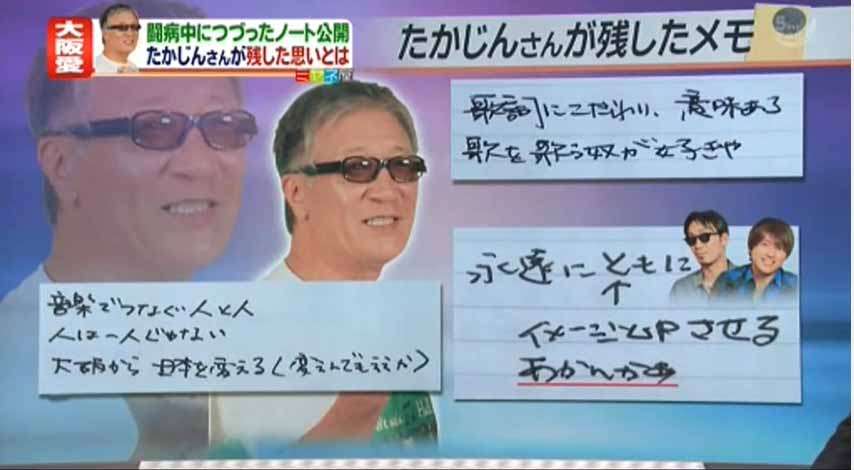 大阪愛
闘病中につづったノート公開
たかじんさんが残した思いとは
ミヤネ屋
たかじんさんが残したメモ
歌詞にこだわり、意味ある
歌を歌う奴が好きや
永遠にともに
↑
イメージUPさせる
あかんか
音楽でつなぐ人と人
人は一人じゃない
大阪から日本を変える〈変えんでもええか〉